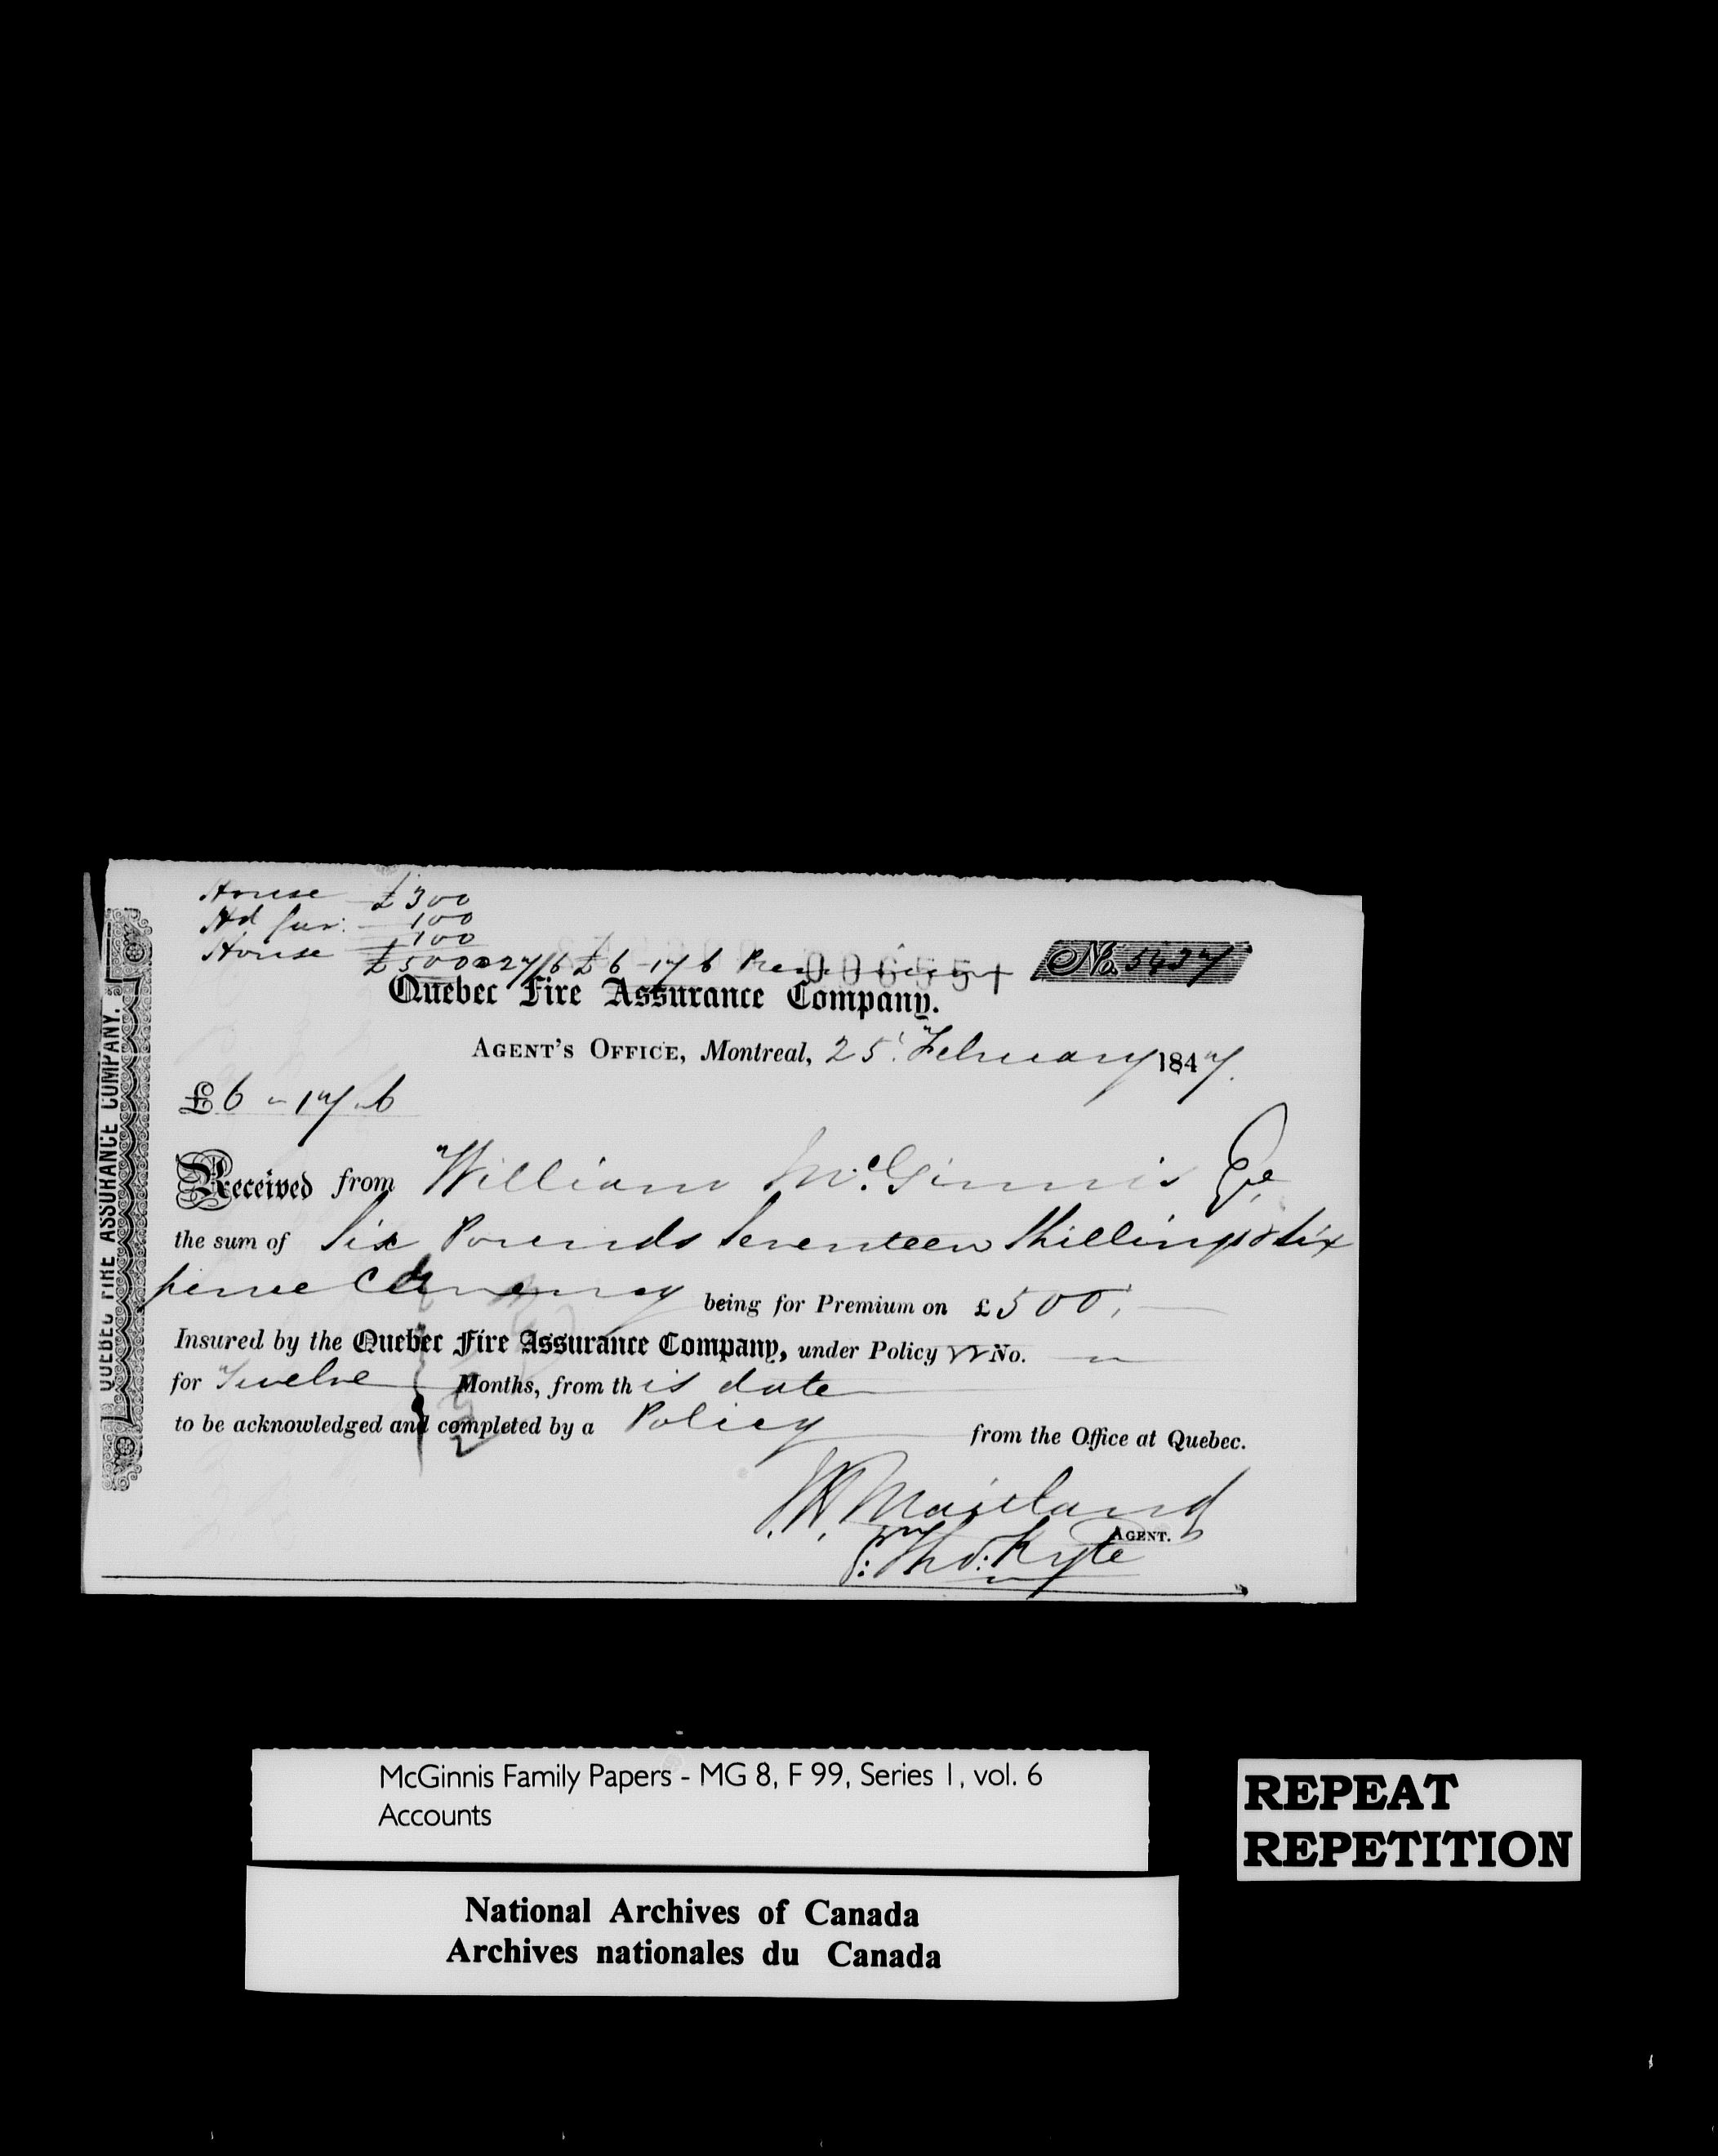 House £300
Hd fur: 100
House 100
£500 @ 27/6 £6-17-6
006551
No. 5437
QUEBEC FIRE ASSURANCE COMPANY.
Quebec Fire Assurance Company.
AGENT'S OFFICE, Montreal, 25. February 1847.
£6-17-6
Received from William McGinnis Esqe
the sum of Six Pounds Seventeen Shillings & Six
pence Currency being for Premium on £500.
Insured by the Quebec Fire Assurance Company, under Policy No.
for Twelve Months, from this date
to be acknowledged and completed by a Policy from the Office at Quebec.
Maitland
AGENT.
p: Tho: Kyte
McGinnis Family Papers - MG 8, F 99, Series 1, vol. 6
Accounts
REPEAT
REPETITION
National Archives of Canada
Archives nationales du Canada